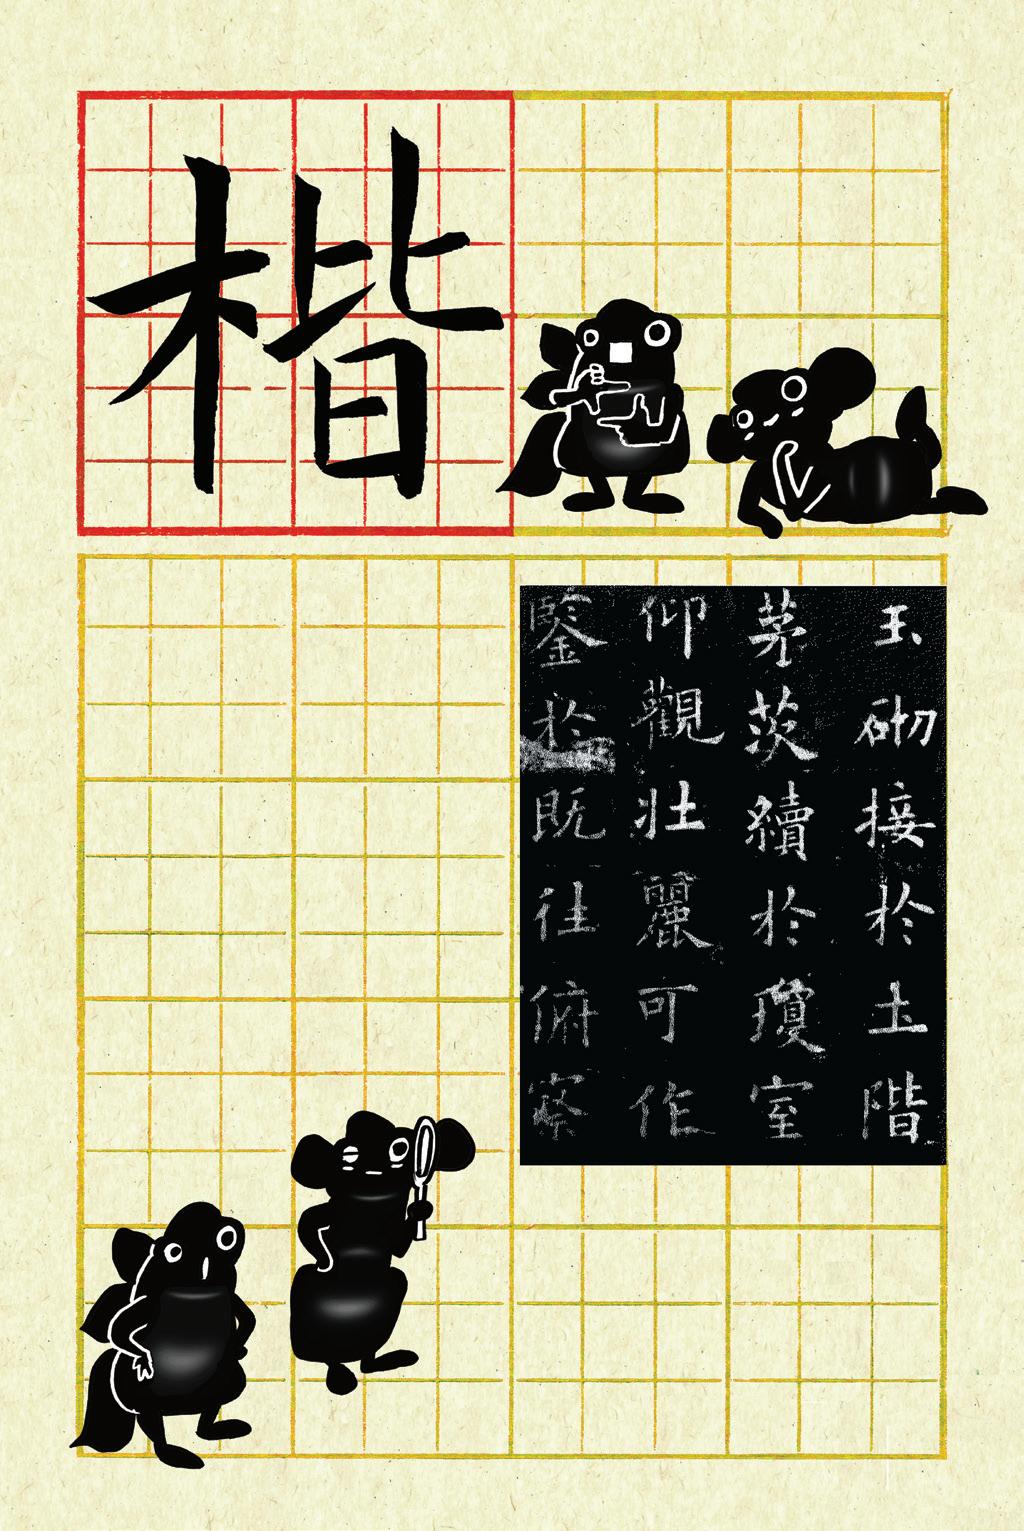 楷
玉砌接於土階
茅茨續於瓊室
仰觀壯麗可作
鑒於既往俯察